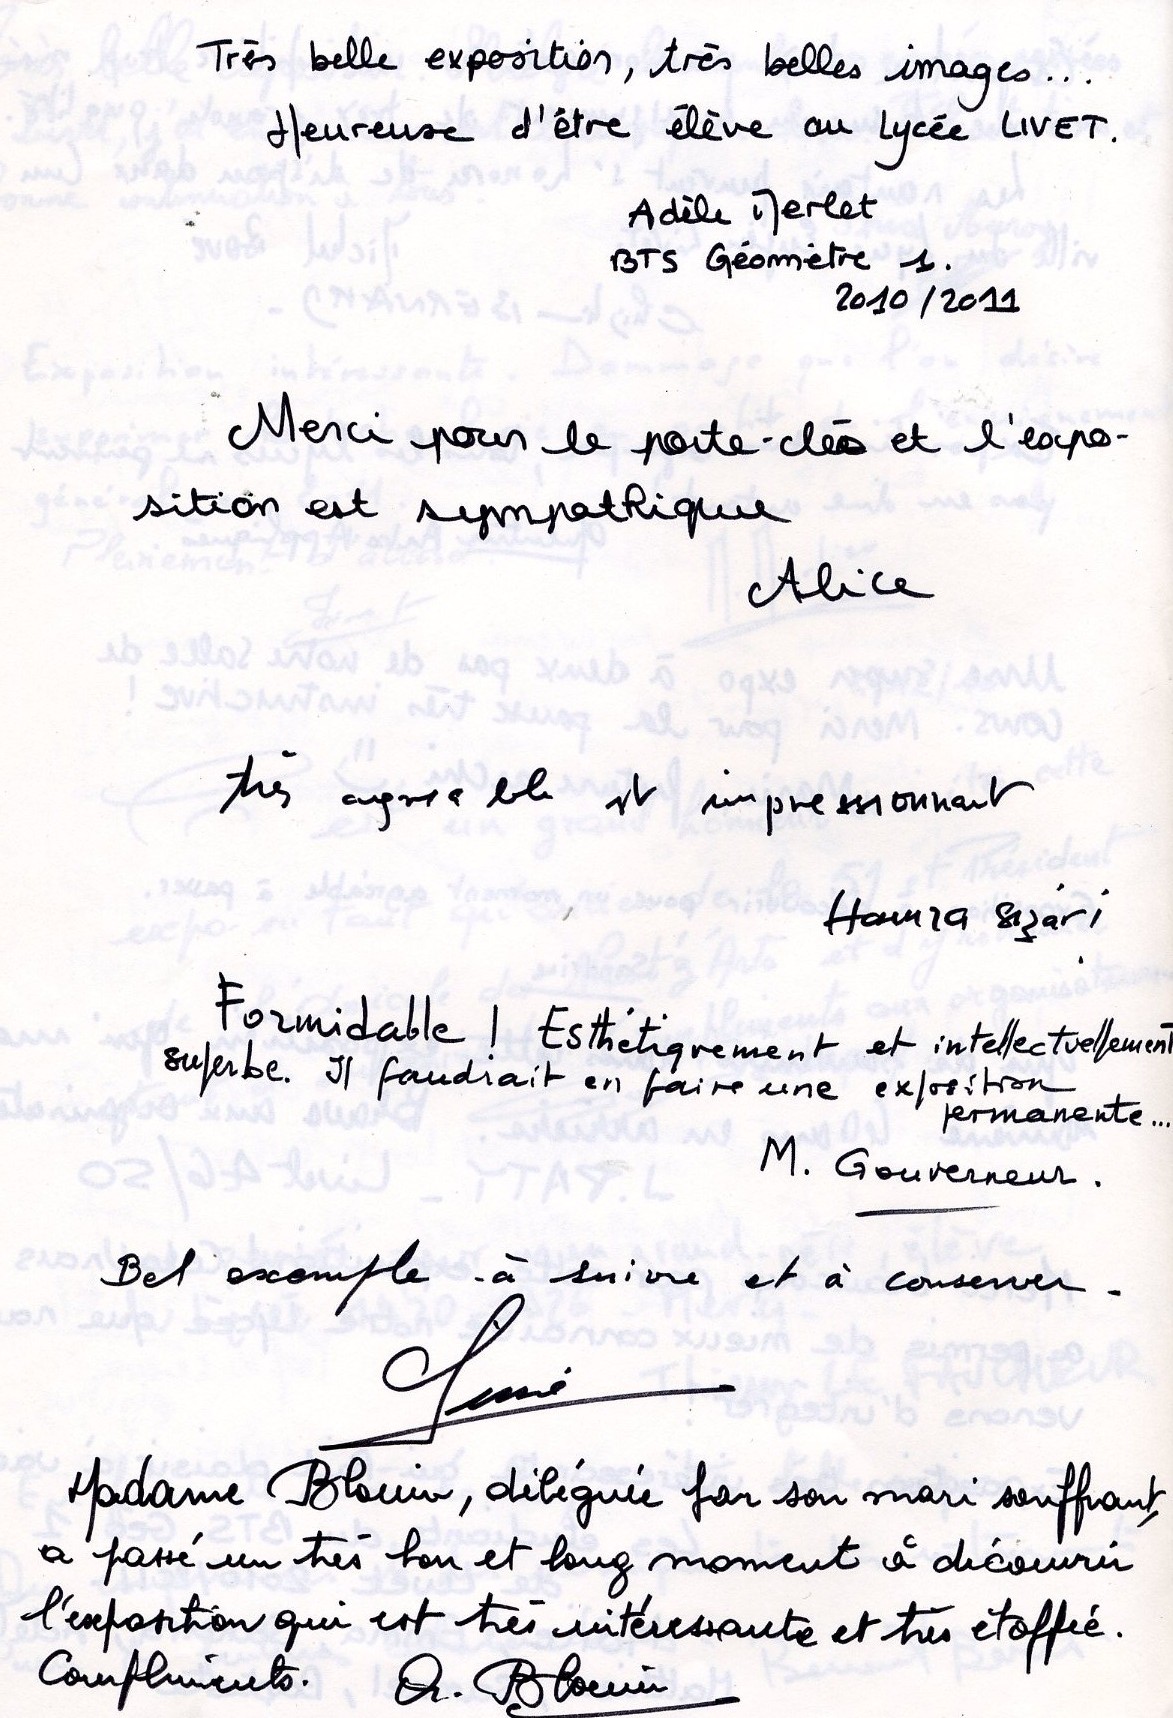 Très belle exposition, très belles images...
Heureuse d'être élève au Lycée LIVET.
Adèle Merlet
BTS Géomètre 1.
2010/2011
Merci pour le porte-clés et l'expo-
sition est sympathique
Alice
très agréable et impressionnant
Hamza
Formidable ! Esthétiquement et intellectuellement
superbe. Il faudrait en faire une exposition
permanente...
M. Gouverneur.
Bel exemple à suivre et à conserver.
Madame Blouin, déléguée par son mari souffrant,
a passé un très bon et long moment à découvrir
l'exposition qui est très intéressante et très étoffée.
Compliments. Blouin